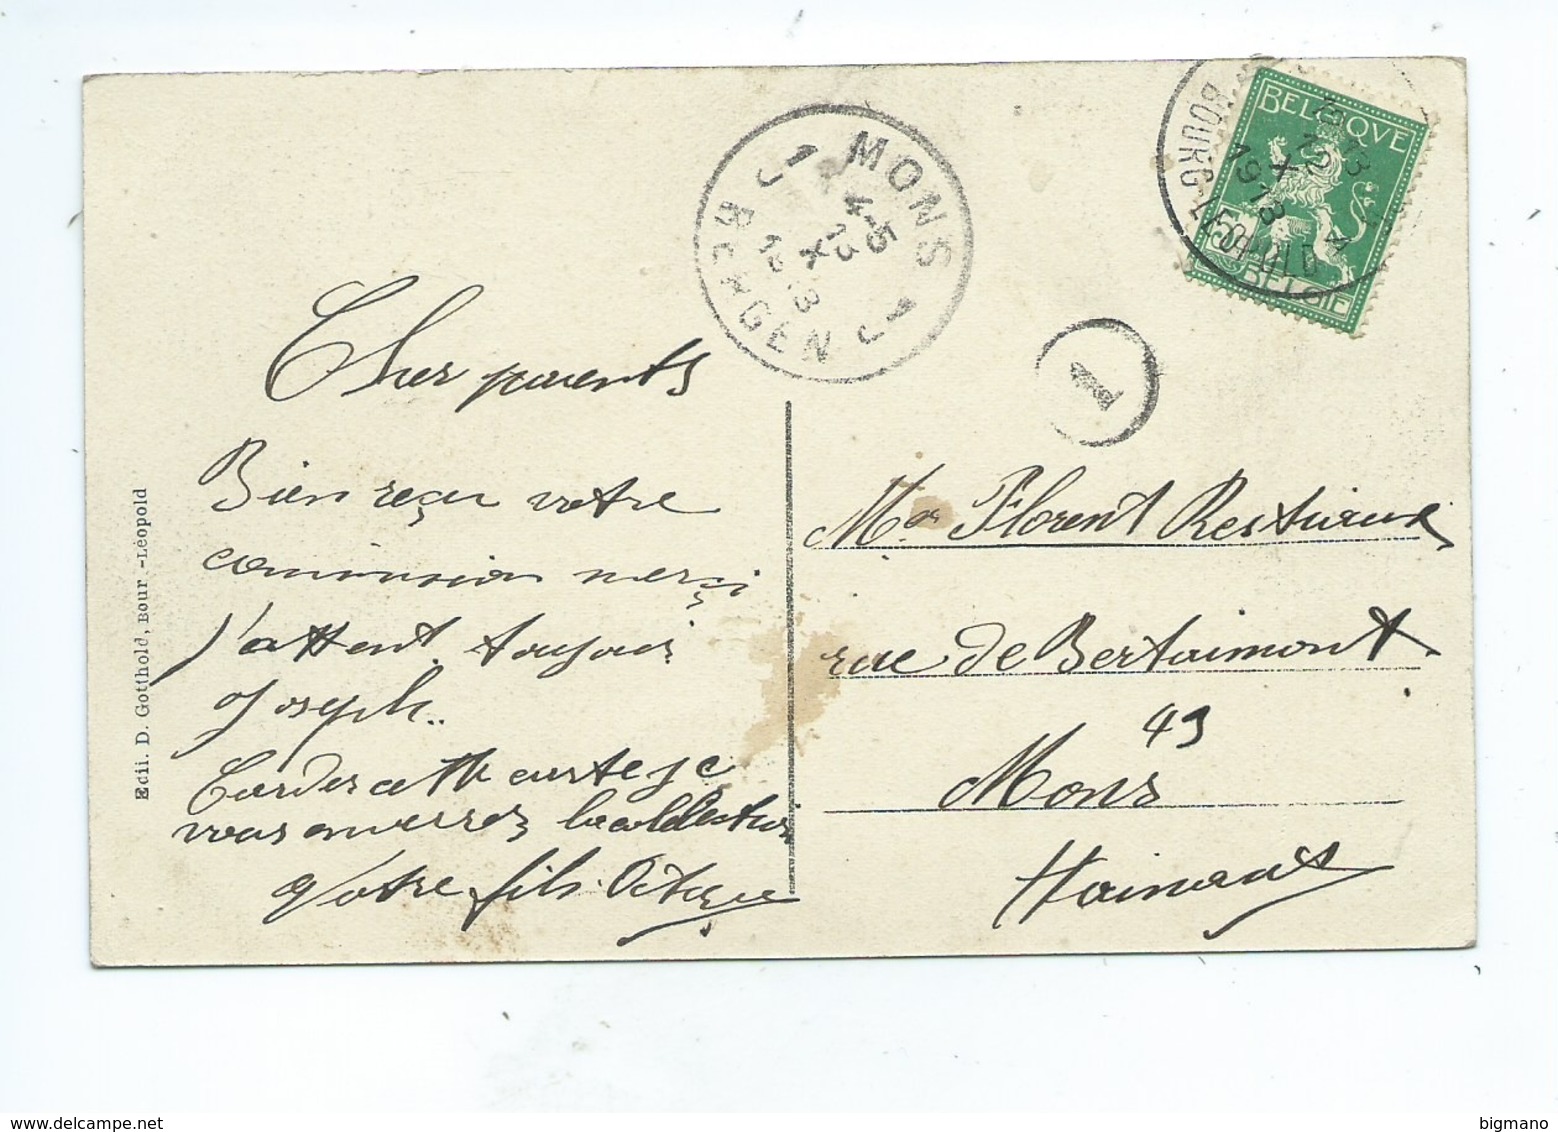 MONS
BERGEN
4-5
13
X
1913
BELGIQUE
BELGIË
BOURG-LÉOPOLD
12
X
1913
1
Cher parents
Bien reçu votre
commission merci
j'attent toujours
Joseph..
Garder cette carte je
vous enverrez la collection
Votre fils
Mr Florent Restiaux
rue de Bertaimont
49
Mons
Hainaut
Edit. D. Gotthold, Bour -Léopold
bigmano